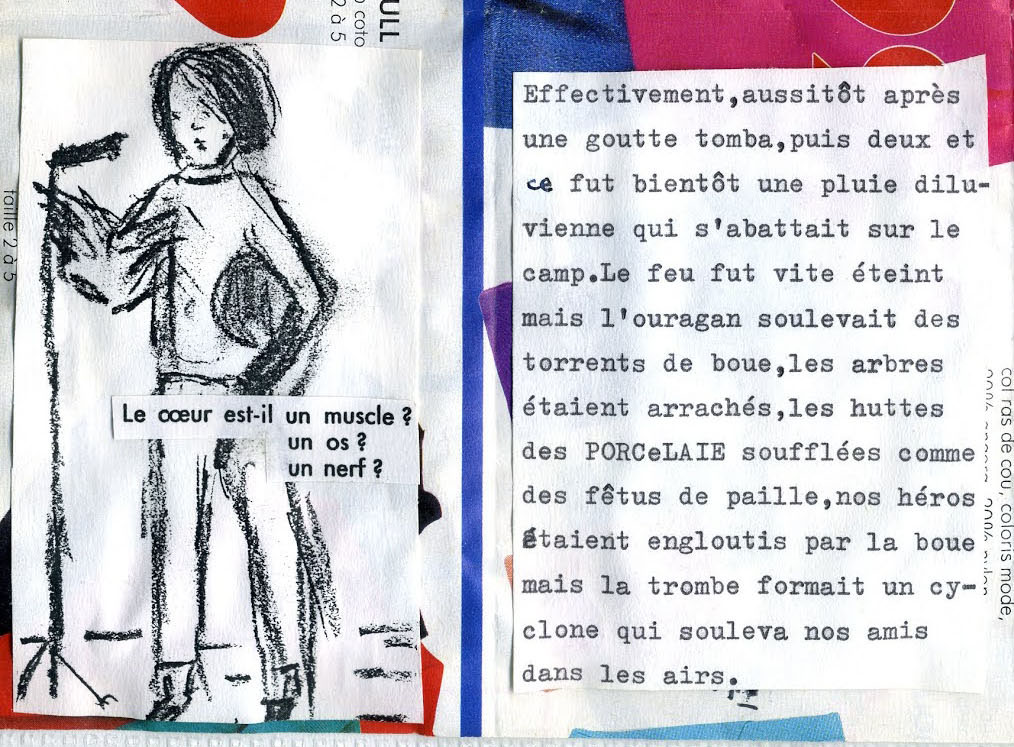 ULL
o coto
2 à 5
taille 2 à 5
Le cœur est-il un muscle ?
un os ?
un nerf ?
Effectivement,aussitôt après
une goutte tomba,puis deux et
ce fut bientôt une pluie dilu-
vienne qui s'abattait sur le
camp.Le feu fut vite éteint
mais l'ouragan soulevait des
torrents de boue,les arbres
étaient arrachés,les huttes
des PORCeLAIE soufflées comme
des fêtus de paille,nos héros
étaient engloutis par la boue
mais la trombe formait un cy-
clone qui souleva nos amis
dans les airs.
col ras de cou, coloris mode,